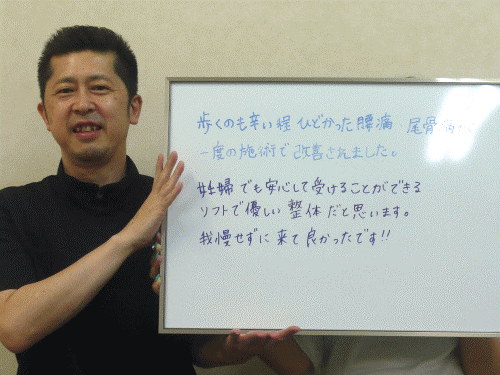 歩くのも辛い程 ひどかった腰痛 尾骨痛が
一度の施術で 改善されました。
妊婦でも安心して受けることができる
ソフトで優しい 整体だと思います。
我慢せずに来て良かったです!!